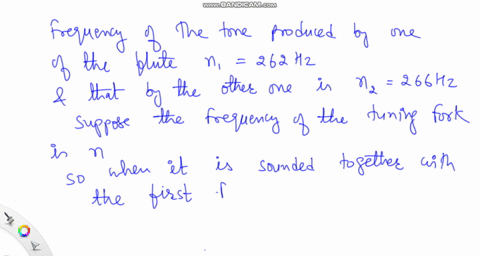 www.BANDICAM.com
Frequency of The tone produced by one
of the flute n₁ = 262 Hz
& that by the other one is n₂ = 266 Hz
Suppose the frequency of the tuning fork
is n
so when it is sounded together with
the first